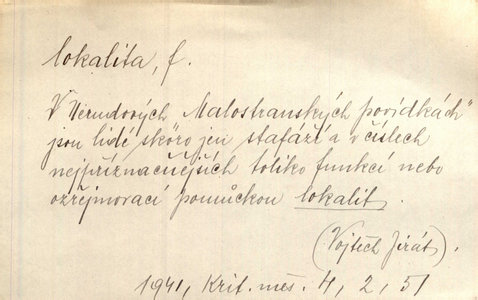 lokalita, f.
V Nerudových „Malostranských povídkách"
jsou lidé skoro jen stafáží a v číslech
nejpříznačnějších toliko funkcí nebo
ozřejmovací pomůckou lokalit.
(Vojtěch Jirát).
1941, Krit. měs. 4, 2, 51